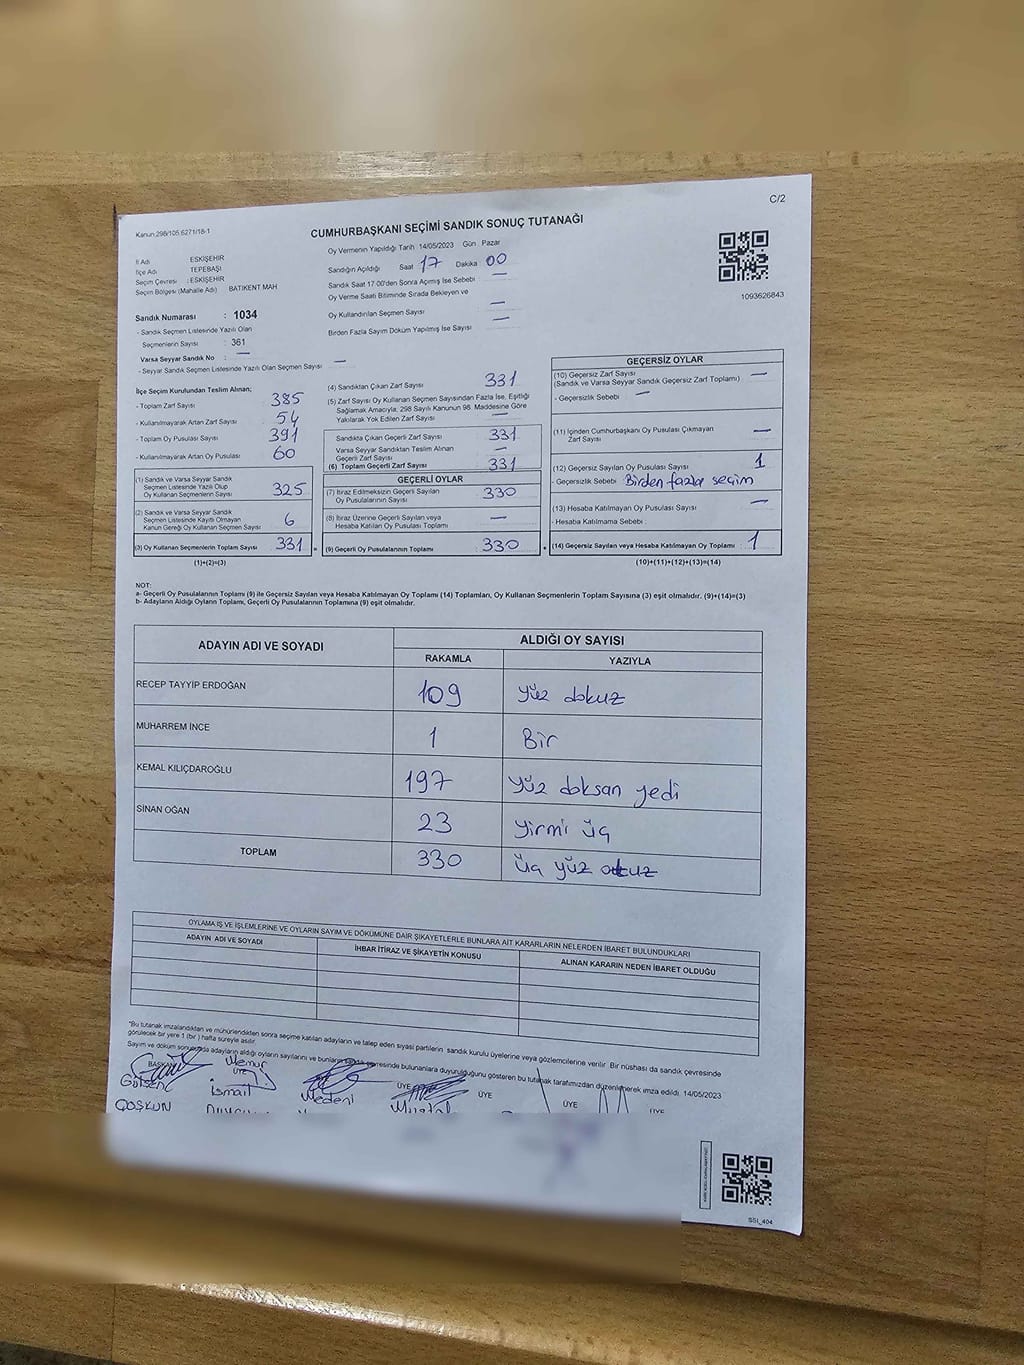 C/2
Kanun 298/105.6271/18-1
CUMHURBAŞKANI SEÇİMİ SANDIK SONUÇ TUTANAĞI
1093626843
İl Adı : ESKİŞEHİR
İlçe Adı : TEPEBAŞI
Seçim Çevresi : ESKİŞEHİR
Seçim Bölgesi (Mahalle Adı) BATIKENT MAH
Sandık Numarası : 1034
- Sandık Seçmen Listesinde Yazılı Olan
Seçmenlerin Sayısı : 361
Varsa Seyyar Sandık No : —
- Seyyar Sandık Seçmen Listesinde Yazılı Olan Seçmen Sayısı —
Oy Vermenin Yapıldığı Tarih 14/05/2023 Gün Pazar
Sandığın Açıldığı Saat 17 Dakika 00
Sandık Saat 17:00'den Sonra Açılmış İse Sebebi —
Oy Verme Saati Bitiminde Sırada Bekleyen ve
Oy Kullandırılan Seçmen Sayısı —
Birden Fazla Sayım Döküm Yapılmış İse Sayısı —
İlçe Seçim Kurulundan Teslim Alınan;
- Toplam Zarf Sayısı 385
- Kullanılmayarak Artan Zarf Sayısı 54
- Toplam Oy Pusulası Sayısı 391
- Kullanılmayarak Artan Oy Pusulası 60
(1) Sandık ve Varsa Seyyar Sandık
Seçmen Listesinde Yazılı Olup
Oy Kullanan Seçmenlerin Sayısı 325
(2) Sandık ve Varsa Seyyar Sandık
Seçmen Listesinde Kayıtlı Olmayan
Kanun Gereği Oy Kullanan Seçmen Sayısı 6
(3) Oy Kullanan Seçmenlerin Toplam Sayısı 331 =
(1)+(2)=(3)
(4) Sandıktan Çıkan Zarf Sayısı 331
(5) Zarf Sayısı Oy Kullanan Seçmen Sayısından Fazla İse, Eşitliği
Sağlamak Amacıyla, 298 Sayılı Kanunun 98. Maddesine Göre
Yakılarak Yok Edilen Zarf Sayısı —
Sandıkta Çıkan Geçerli Zarf Sayısı 331
Varsa Seyyar Sandıktan Teslim Alınan
Geçerli Zarf Sayısı —
(6) Toplam Geçerli Zarf Sayısı 331
GEÇERLİ OYLAR
(7) İtiraz Edilmeksizin Geçerli Sayılan
Oy Pusulalarının Sayısı 330
(8) İtiraz Üzerine Geçerli Sayılan veya
Hesaba Katılan Oy Pusulası Toplamı —
(9) Geçerli Oy Pusulalarının Toplamı 330
GEÇERSİZ OYLAR
(10) Geçersiz Zarf Sayısı —
(Sandık ve Varsa Seyyar Sandık Geçersiz Zarf Toplamı)
- Geçersizlik Sebebi —
(11) İçinden Cumhurbaşkanı Oy Pusulası Çıkmayan
Zarf Sayısı —
(12) Geçersiz Sayılan Oy Pusulası Sayısı 1
- Geçersizlik Sebebi Birden fazla seçim
(13) Hesaba Katılmayan Oy Pusulası Sayısı —
- Hesaba Katılmama Sebebi
(14) Geçersiz Sayılan veya Hesaba Katılmayan Oy Toplamı 1
(10)+(11)+(12)+(13)=(14)
NOT:
a- Geçerli Oy Pusulalarının Toplamı (9) ile Geçersiz Sayılan veya Hesaba Katılmayan Oy Toplamı (14) Toplamları, Oy Kullanan Seçmenlerin Toplam Sayısına (3) eşit olmalıdır. (9)+(14)=(3)
b- Adayların Aldığı Oyların Toplamı, Geçerli Oy Pusulalarının Toplamına (9) eşit olmalıdır.
ADAYIN ADI VE SOYADI ALDIĞI OY SAYISI
RAKAMLA YAZIYLA
RECEP TAYYİP ERDOĞAN 109 Yüz dokuz
MUHARREM İNCE 1 Bir
KEMAL KILIÇDAROĞLU 197 Yüz doksan yedi
SİNAN OĞAN 23 Yirmi üç
TOPLAM 330 Üç yüz otuz
OYLAMA İŞ VE İŞLEMLERİNE VE OYLARIN SAYIM VE DÖKÜMÜNE DAİR ŞİKAYETLERLE BUNLARA AİT KARARLARIN NELERDEN İBARET BULUNDUKLARI
ADAYIN ADI VE SOYADI İHBAR İTİRAZ VE ŞİKAYETİN KONUSU ALINAN KARARIN NEDEN İBARET OLDUĞU
"Bu tutanak imzalandıktan ve mühürlendikten sonra seçime katılan adayların ve talep eden siyasi partilerin sandık kurulu üyelerine veya gözlemcilerine verilir Bir nüshası da sandık çevresinde
görülecek bir yere 1 (bir) hafta süreyle asılır.
Sayım ve döküm sonucunda adayların aldığı oyların sayılarını ve bunların sandık çevresinde bulunanlara duyurulduğunu gösteren bu tutanak tarafımızdan düzenlenerek imza edildi. 14/05/2023
BAŞKAN Memur ÜYE ÜYE ÜYE ÜYE ÜYE
Gülsen İsmail Medeni
COŞKUN
SSİ_404